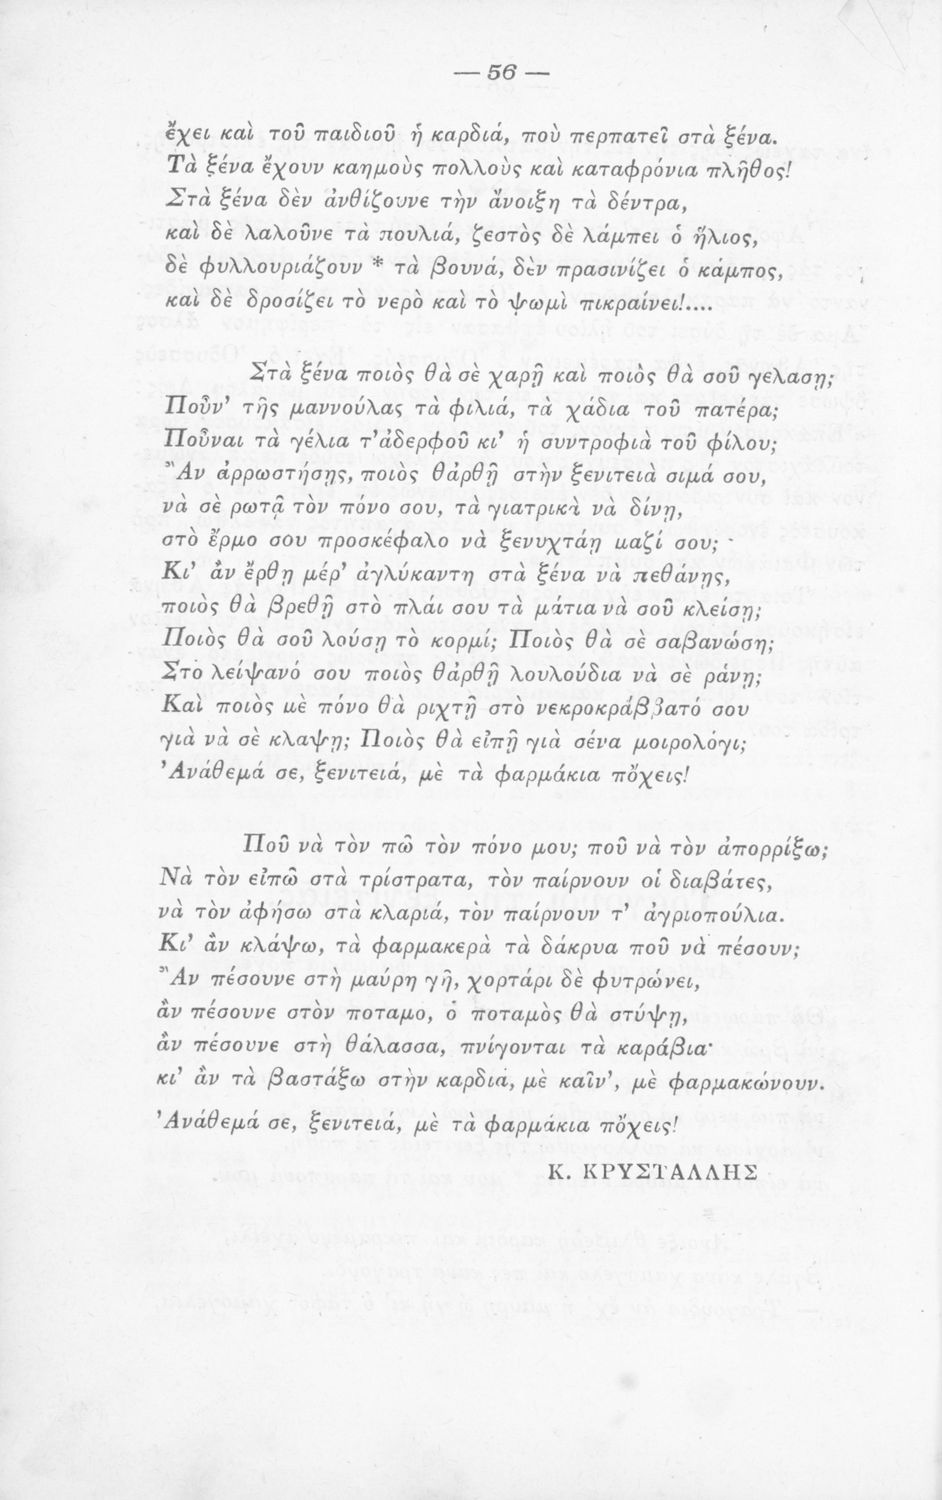 — 56 —
ἔχει καὶ τοῦ παιδιοῦ ἡ καρδιά, ποὺ περπατεῖ στὰ ξένα.
Τὰ ξένα ἔχουν καημοὺς πολλοὺς καὶ καταφρόνια πλῆθος!
Στὰ ξένα δὲν ἀνθίζουνε τὴν ἄνοιξη τὰ δέντρα,
καὶ δὲ λαλοῦνε τὰ πουλιά, ζεστὸς δὲ λάμπει ὁ ἥλιος,
δὲ φυλλουριάζουν * τὰ βουνά, δὲν πρασινίζει ὁ κάμπος,
καὶ δὲ δροσίζει τὸ νερὸ καὶ τὸ ψωμὶ πικραίνει!....
Στὰ ξένα ποιὸς θὰ σὲ χαρῇ καὶ ποιὸς θὰ σοῦ γελαση;
Ποῦν' τῆς μαννούλας τὰ φιλιά, τὰ χάδια τοῦ πατέρα;
Ποῦναι τὰ γέλια τ'ἀδερφοῦ κι' ἡ συντροφιὰ τοῦ φίλου;
Ἂν ἀρρωστήσῃς, ποιὸς θἀρθῇ στὴν ξενιτειὰ σιμά σου,
νὰ σὲ ρωτᾷ τὸν πόνο σου, τὰ γιατρικὰ νὰ δίνῃ,
στὸ ἔρμο σου προσκέφαλο νὰ ξενυχτάῃ μαζί σου;
Κι' ἂν ἔρθῃ μέρ' ἀγλύκαντη στὰ ξένα νὰ πεθάνῃς,
ποιὸς θὰ βρεθῇ στὸ πλάι σου τὰ μάτια νὰ σοῦ κλείσῃ;
Ποιὸς θὰ σοῦ λούσῃ τὸ κορμί; Ποιὸς θὰ σὲ σαβανώσῃ;
Στὸ λείψανό σου ποιὸς θἀρθῇ λουλούδια νὰ σὲ ράνῃ;
Καὶ ποιὸς μὲ πόνο θὰ ριχτῇ στὸ νεκροκράββατό σου
γιὰ νὰ σὲ κλαψῃ; Ποιὸς θὰ εἰπῇ γιὰ σένα μοιρολόγι;
Ἀνάθεμά σε, ξενιτειά, μὲ τὰ φαρμάκια πὄχεις!
Ποῦ νὰ τὸν πῶ τὸν πόνο μου; ποῦ νὰ τὸν ἀπορρίξω;
Νὰ τὸν εἰπῶ στὰ τρίστρατα, τὸν παίρνουν οἱ διαβάτες,
νὰ τὸν ἀφήσω στὰ κλαριά, τὸν παίρνουν τ' ἀγριοπούλια.
Κι' ἂν κλάψω, τὰ φαρμακερὰ τὰ δάκρυα ποῦ νὰ πέσουν;
Ἂν πέσουνε στὴ μαύρη γῆ, χορτάρι δὲ φυτρώνει,
ἂν πέσουνε στὸν ποταμο, ὁ ποταμὸς θὰ στύψῃ,
ἂν πέσουνε στὴ θάλασσα, πνίγονται τὰ καράβια·
κι' ἂν τὰ βαστάξω στὴν καρδιά, μὲ καῖν', μὲ φαρμακώνουν.
Ἀνάθεμά σε, ξενιτειά, μὲ τὰ φαρμάκια πὄχεις!
Κ. ΚΡΥΣΤΑΛΛΗΣ